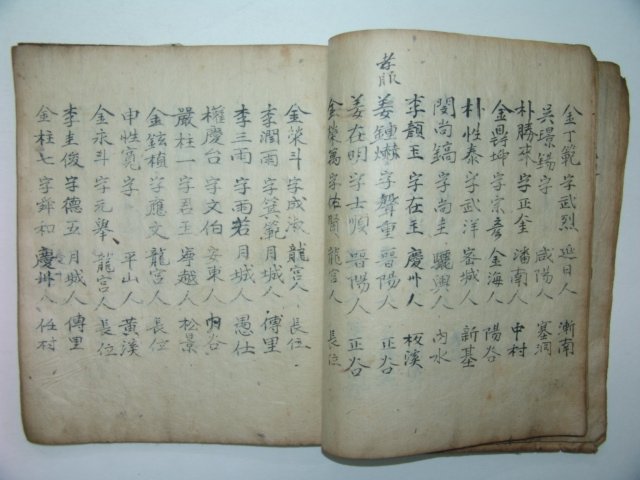 金丁範 字武烈 延日人 淅南
吳璟錫 字 咸陽人 塞洞
朴勝來 字正奎 潘南人 中村
金冔坤 字宗彥 金海人 陽谷
朴性泰 字武洋 密城人 新基
閔尚鎬 字尚圭 驪興人 內水
李顥玉 字在圭 慶州人 板溪
孝服
姜鍾爀 字聲重 晉陽人 正谷
姜在明 字士順 晉陽人 正谷
金榮萬 字佐賢 龍宮人 長位
金榮斗 字成淑 龍宮人 長位
李潤雨 字箕範 月城人 傳里
李三雨 字雨若 月城人 愚仕
權慶台 字文伯 安東人 內谷
嚴柱一 字君玉 寧越人 松景
金鉉楨 字應文 龍宮人 長位
申性寬 字 平山人 黃溪
金永斗 字元擧 龍宮人 長位
李圭俊 字德五 月城人 傳里
金柱七 字舜和 慶州人 任村